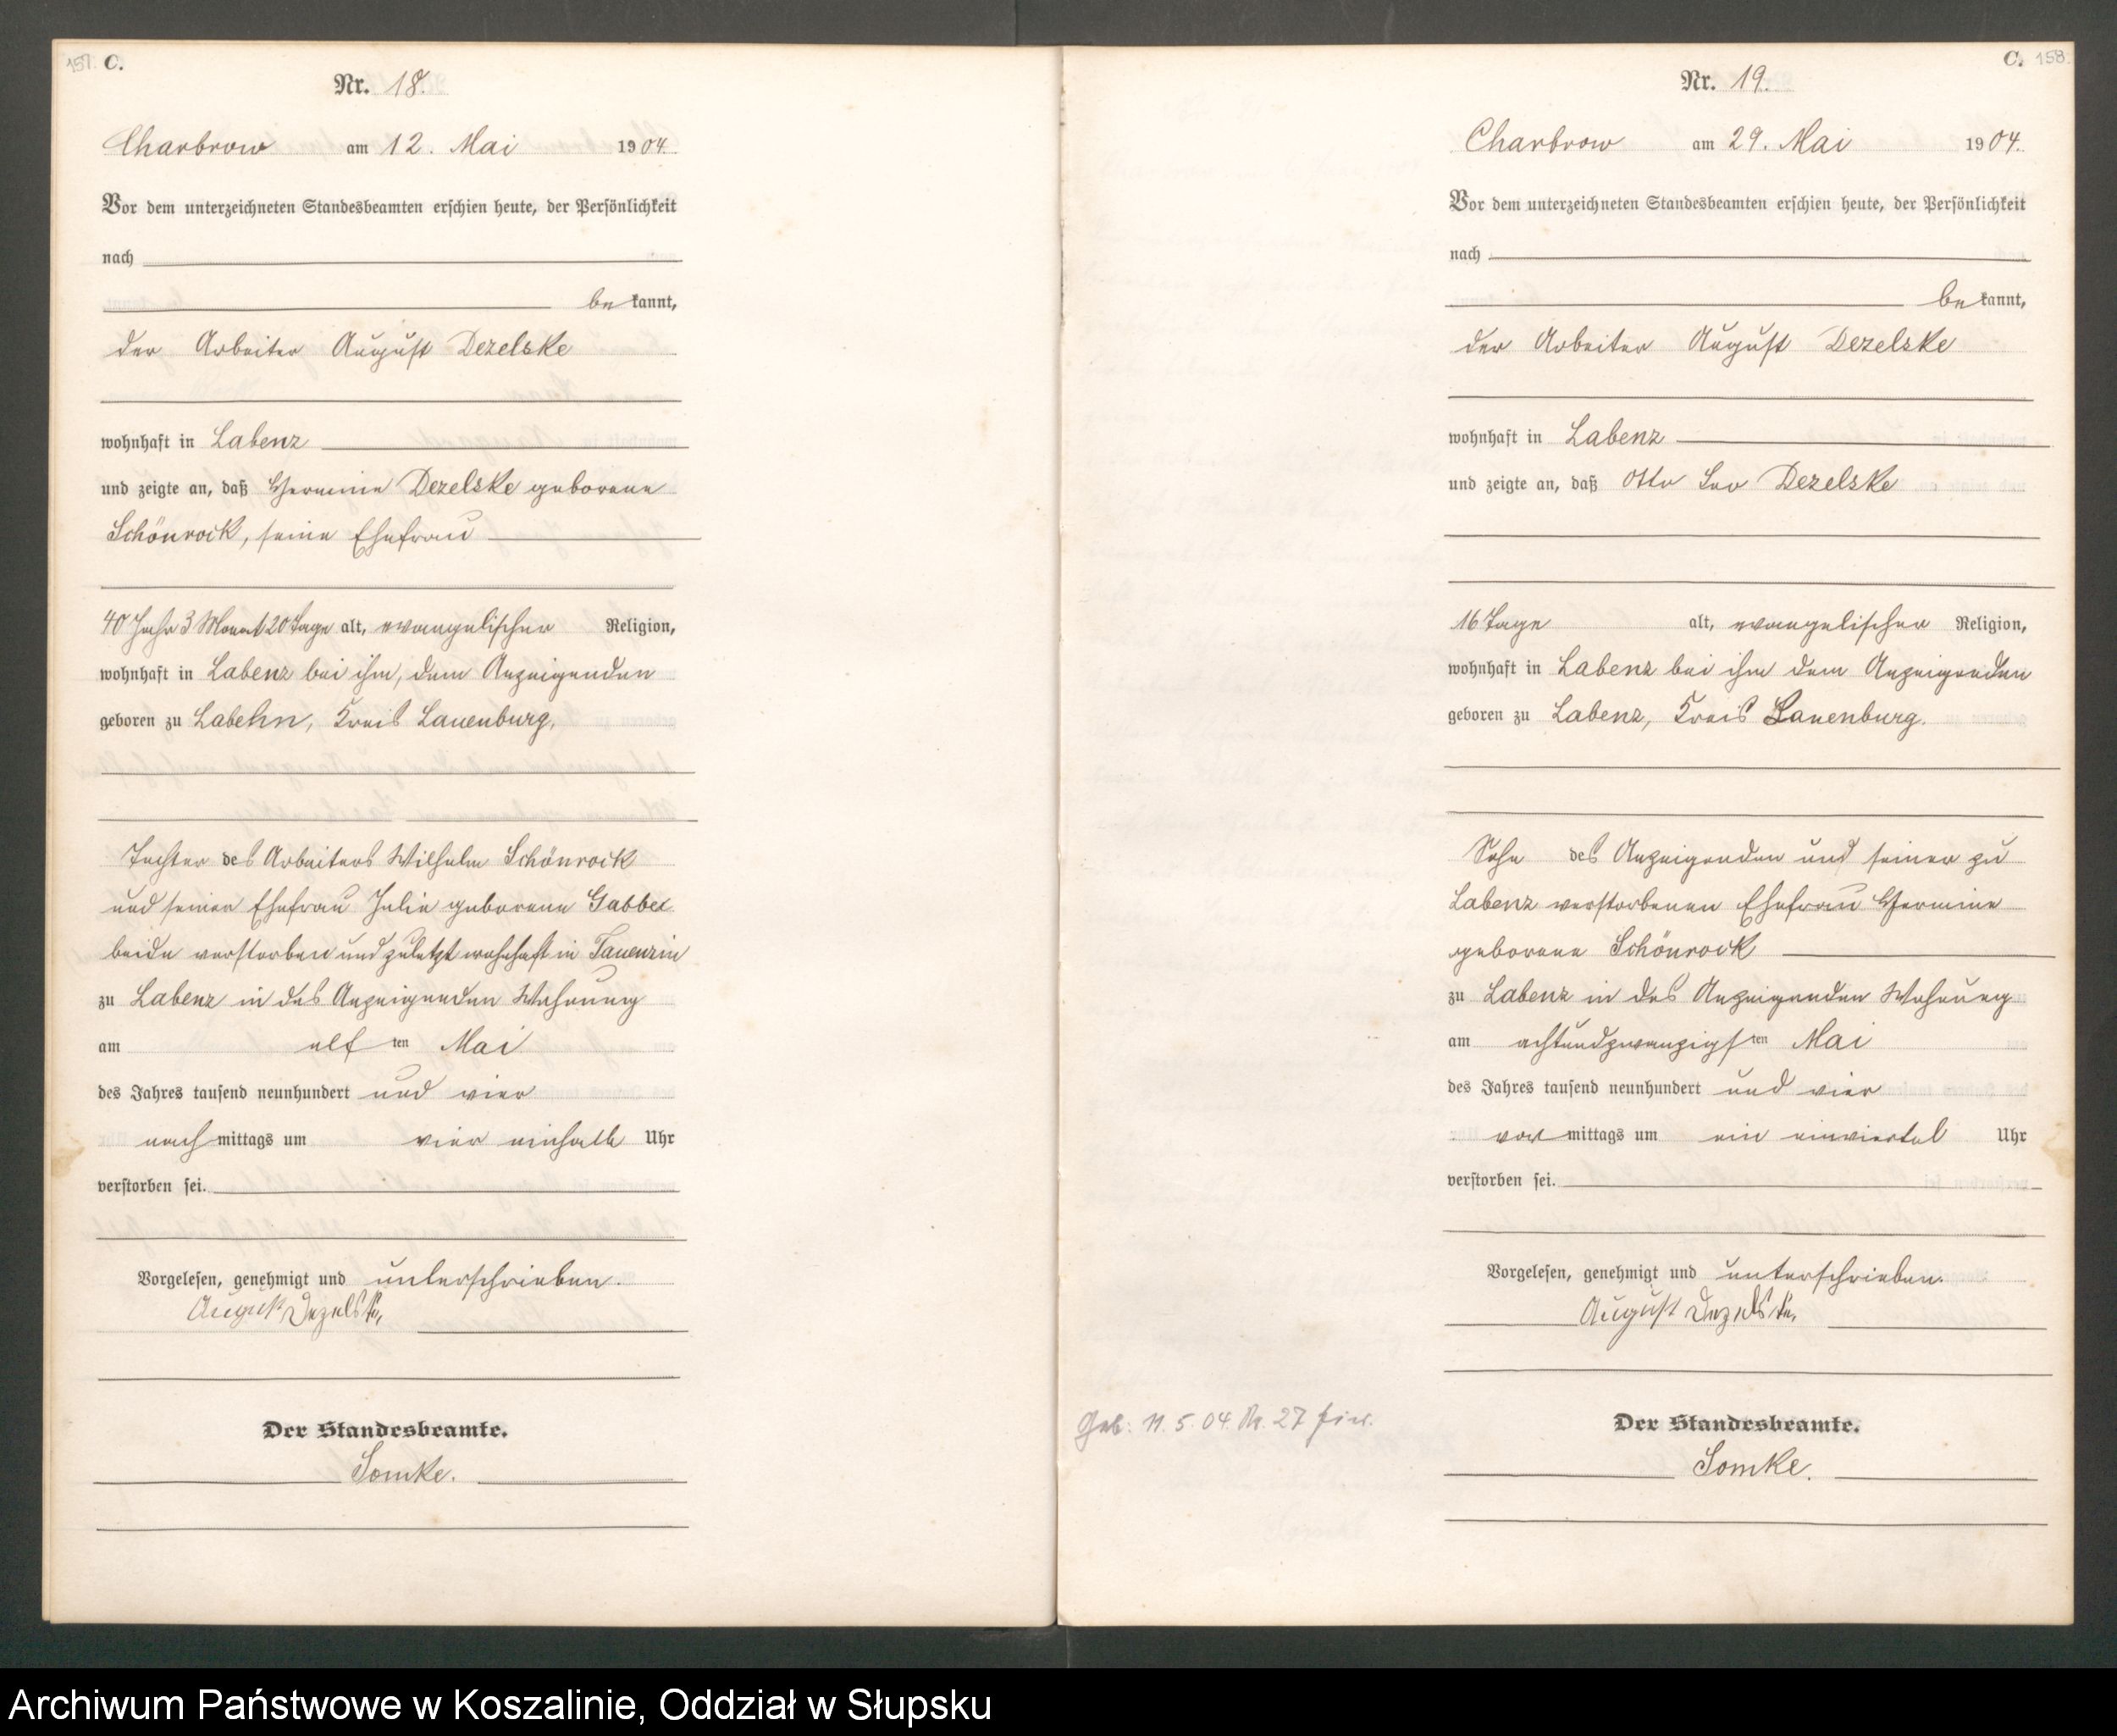 157. C.
Nr. 18.
Charbrow am 12. Mai 1904.
Vor dem unterzeichneten Standesbeamten erschien heute, der Persönlichkeit
nach
be kannt,
der Arbeiter August Dezelske
wohnhaft in Labenz
und zeigte an, daß Hermine Dezelske geborene
Schönrock, seine Ehefrau
40 Jahr 3 Monat 20 Tage alt, evangelischer Religion,
wohnhaft in Labenz bei ihm, dem Anzeigenden
geboren zu Labehn, Kreis Lauenburg,
Tochter des Arbeiters Wilhelm Schönrock
und seiner Ehefrau Julie geborene Gabbei
beide verstorben und zuletzt wohnhaft in Tauenzin
zu Labenz in des Anzeigenden Wohnung
am elf ten Mai
des Jahres tausend neunhundert und vier
nach mittags um vier einhalb Uhr
verstorben sei.
Vorgelesen, genehmigt und unterschrieben.
August Dezelske,
Der Standesbeamte.
Somke.
C. 158.
Nr. 19.
Charbrow am 29. Mai 1904.
Vor dem unterzeichneten Standesbeamten erschien heute, der Persönlichkeit
nach
be kannt,
der Arbeiter August Dezelske
wohnhaft in Labenz
und zeigte an, daß Otto Leo Dezelske
16 Tage alt, evangelischer Religion,
wohnhaft in Labenz bei ihm dem Anzeigenden
geboren zu Labenz, Kreis Lauenburg.
Sohn des Anzeigenden und seiner zu
Labenz verstorbenen Ehefrau Hermine
geborene Schönrock
zu Labenz in des Anzeigenden Wohnung
am achtundzwanzigsten Mai
des Jahres tausend neunhundert und vier
vor mittags um ein einviertel Uhr
verstorben sei.
Vorgelesen, genehmigt und unterschrieben.
August Dezelske,
Geb: 11. 5. 04. Nr. 27
Der Standesbeamte.
Somke.
Archiwum Państwowe w Koszalinie, Oddział w Słupsku